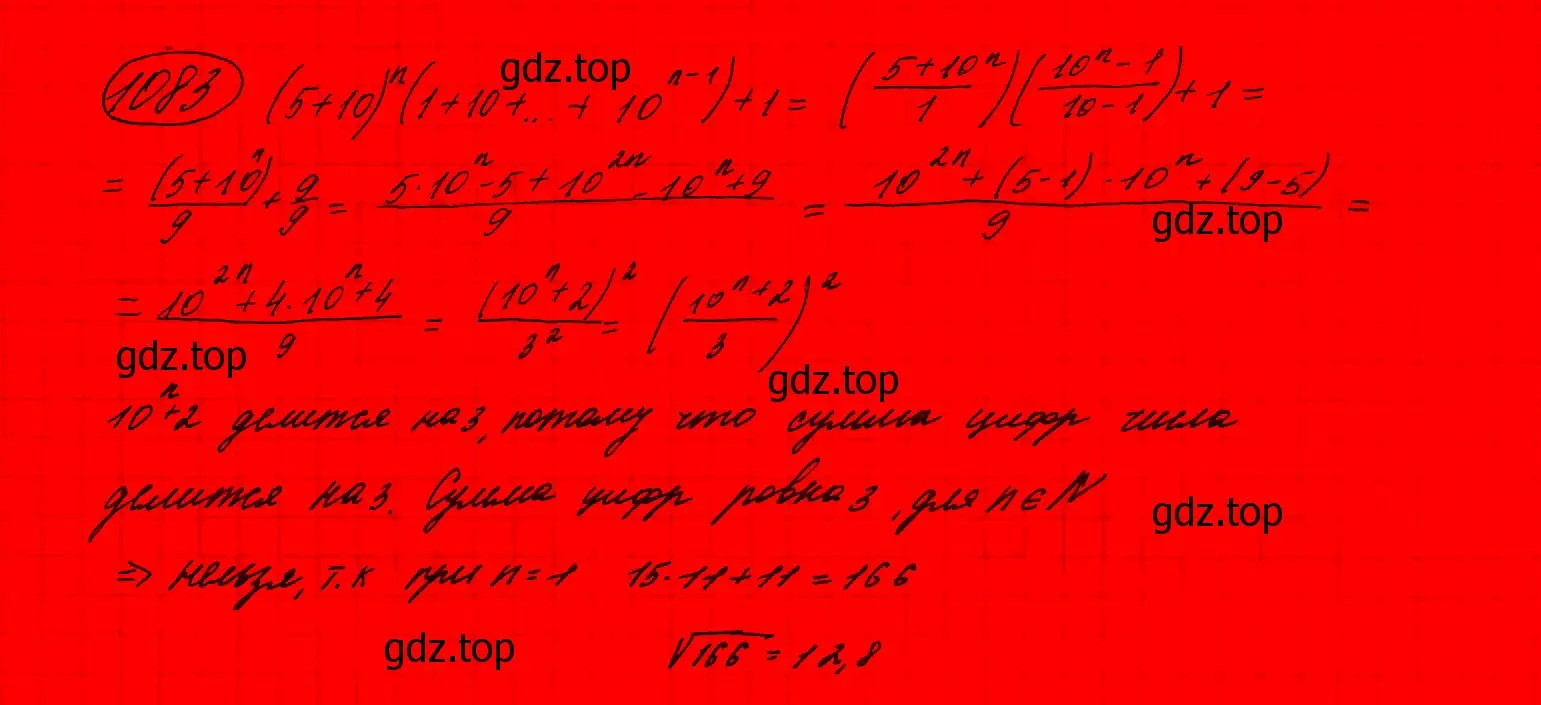 1083 (5+10)^n (1+10+...+10^{n-1})+1= (\frac{5+10^n}{1})(\frac{10^n-1}{10-1})+1=
= \frac{(5+10^n)}{9}+\frac{9}{9}= \frac{5·10^n-5+10^{2n}-10^n+9}{9} = \frac{10^{2n}+(5-1)·10^n+(9-5)}{9} =
= \frac{10^{2n}+4·10^n+4}{9} = \frac{(10^n+2)^2}{3^2} = (\frac{10^n+2}{3})^2
10^n+2 делится на 3, потому что сумма цифр числа
делится на 3. Сумма цифр ровна 3, для n∈N
⇒ нельзя, т.к при n=1 15·11+11=166
√166=12,8
gdz.top
gdz.top
gdz.top
gdz.top
gdz.top
gdz.top